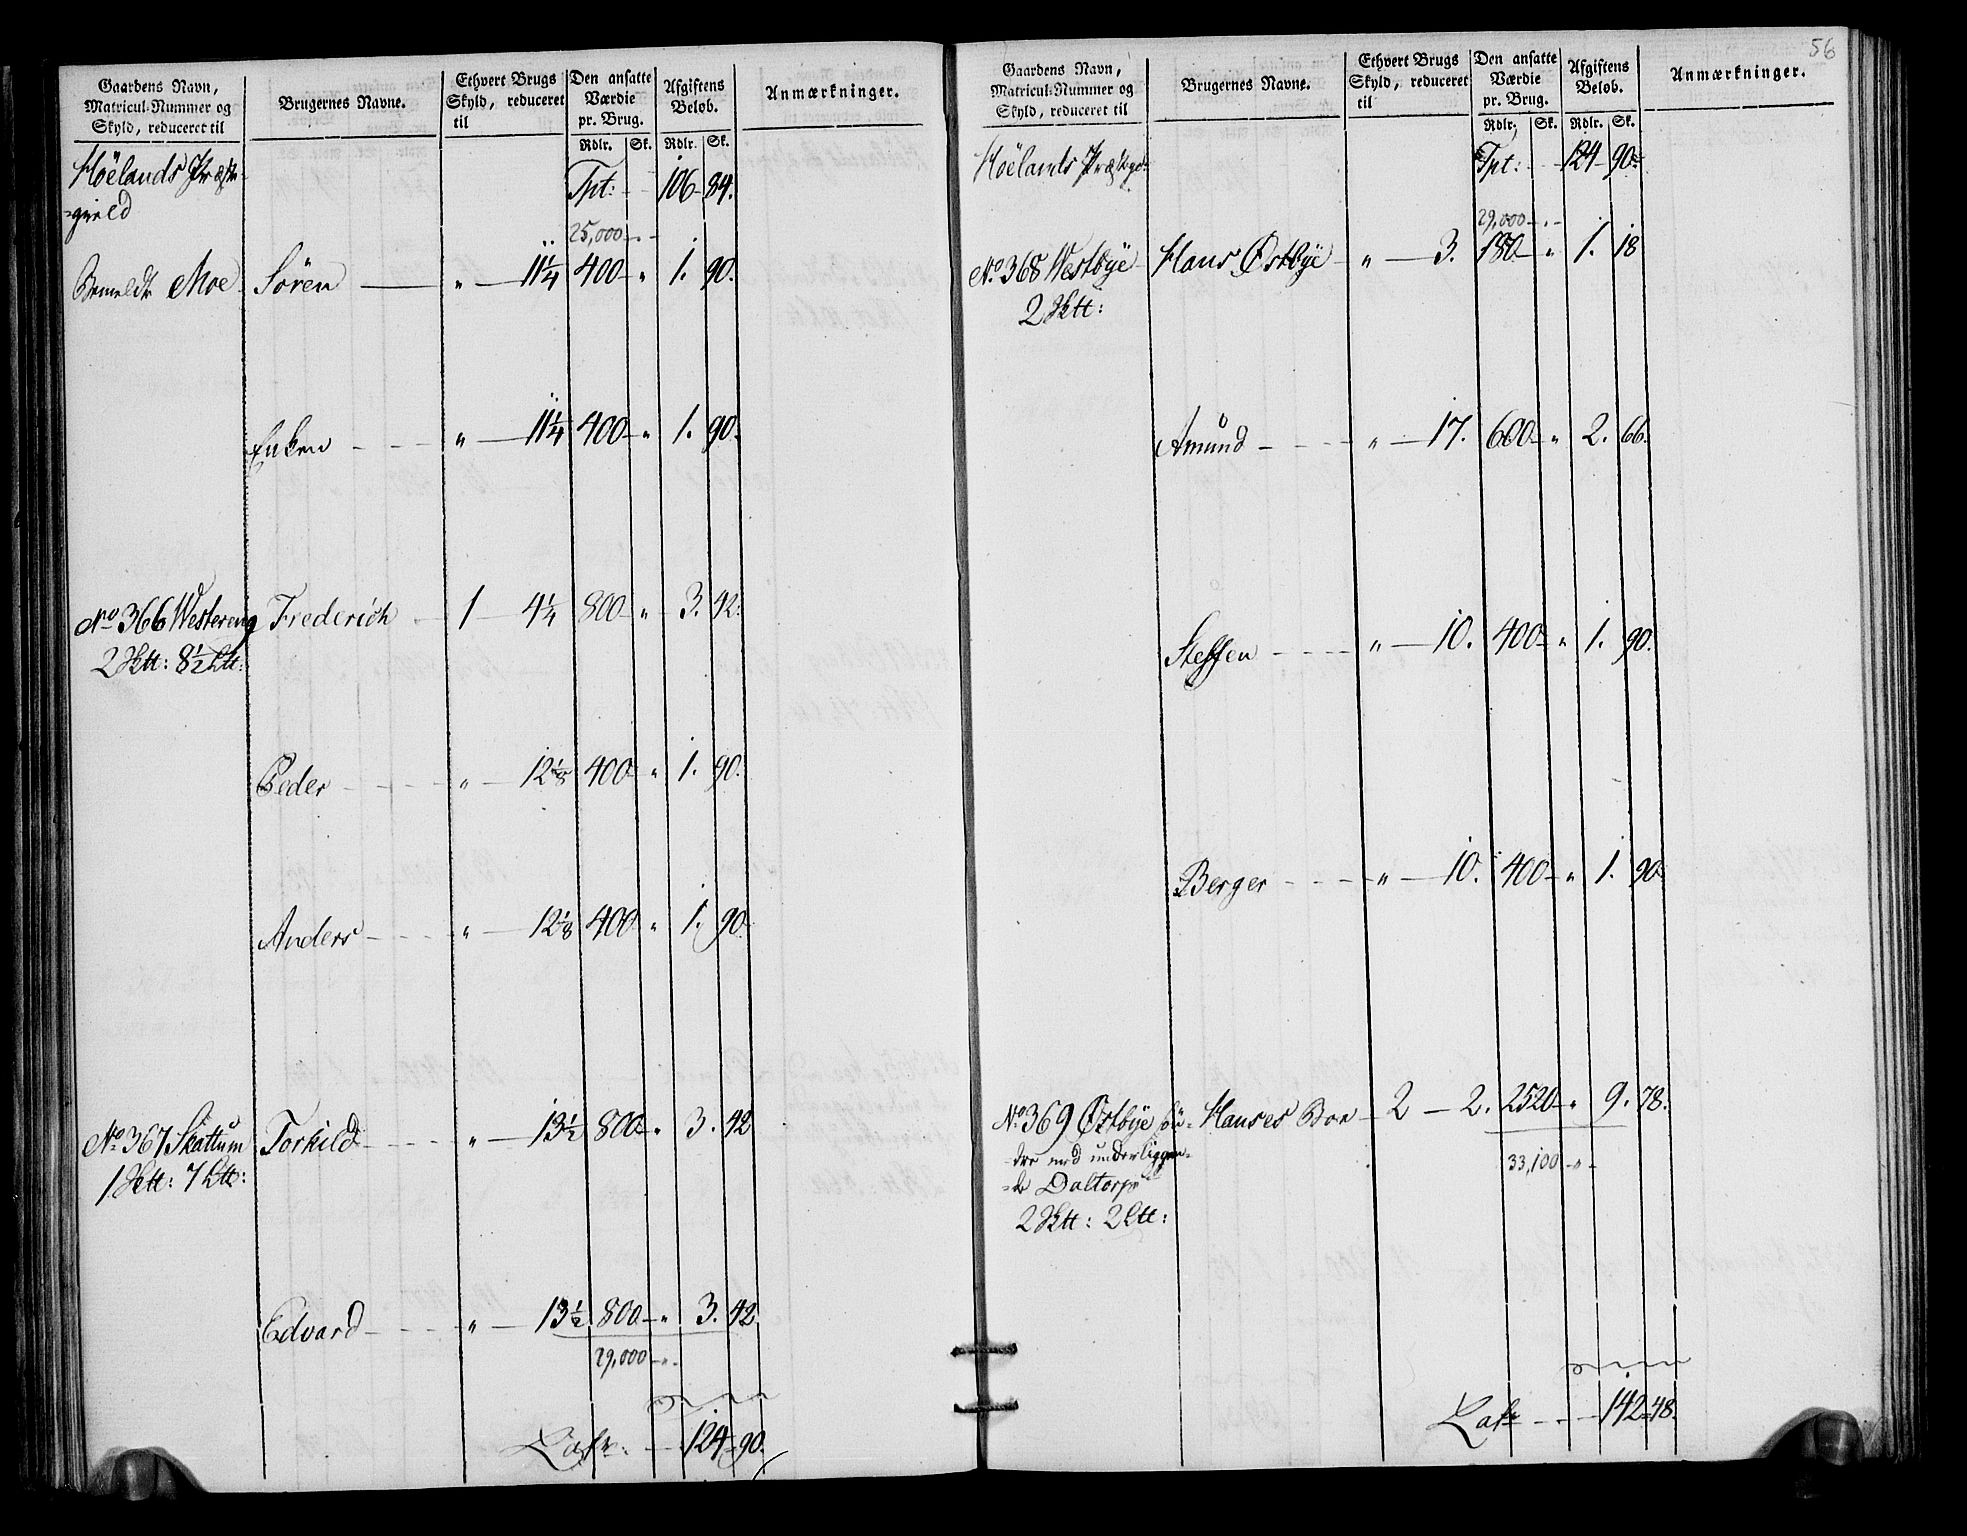 Gaardens Navn,
Matricul-Nummer og
Skyld, reduceret til
Brugernes Navne.
Ethvert Brugs
Skyld, reduceret
til
Den ansatte
Værdie
pr. Brug.
Rdlr. Sk.
Afgiftens
Beløb.
Rdlr. Sk.
Anmærkninger.
Höelands Præste-
=gield Tpt: - - 106 - 84.
25,000 - " -
Bemeldte Moe Sören — " — 11 1/4 400 - " 1. 90.
Enken - - - " — 11 1/4 400 - " 1. 90.
No 366 Westereng Frederich - 1 - 4 1/4 800 - " 3. 42.
2 Sktt: 8 1/2 Ltt:
Peder - - - " — 12 1/8 400 - " 1. 90.
Anders - - - " — 12 1/8 400 - " 1. 90.
No 367 Skattum Torkild - - - " — 13 1/2 800 - " 3. 42
1 Sktt: 7 Ltt:
Edvard - - - " — 13 1/2 800 - " 3. 42
29,000 - " -
Late: - - 124 - 90.
56
Gaardens Navn,
Matricul-Nummer og
Skyld, reduceret til
Brugernes Navne.
Ethvert Brugs
Skyld, reduceret
til
Den ansatte
Værdie
pr. Brug.
Rdlr. Sk.
Afgiftens
Beløb.
Rdlr. Sk.
Anmærkninger.
Höelands Præstegd: Tpt: - - 124 - 90
29,000 - " -
No 368 Westbye Hans Østbye " — 3. 180 - " 1. 18
2 Sktt:
Amund - - - " — 17. 600 - " 2. 66.
Steffen - - - " — 10. 400 - " 1. 90.
Berger - - - " — 10. 400 - " 1. 90
No 369 Østbye søn= Hanses Boe - 2 - 2. 2520 - " 9. 78.
=dre med underliggen=
=de Daltorp 33,100 - " -
2 Sktt: 2 Ltt:
Late - - - 142 - 48.